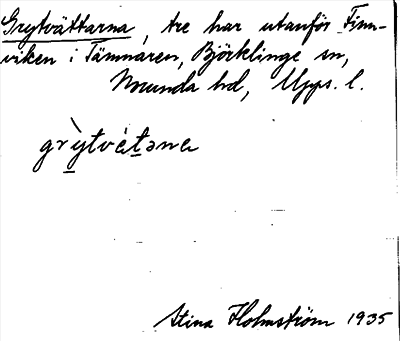 Grytvättarna, tre har utanför Finn-
viken i Tämnaren, Björklinge sn,
Norunda hd, Upps. l.
grỳ̲tvét̲əna
Stina Holmström 1935